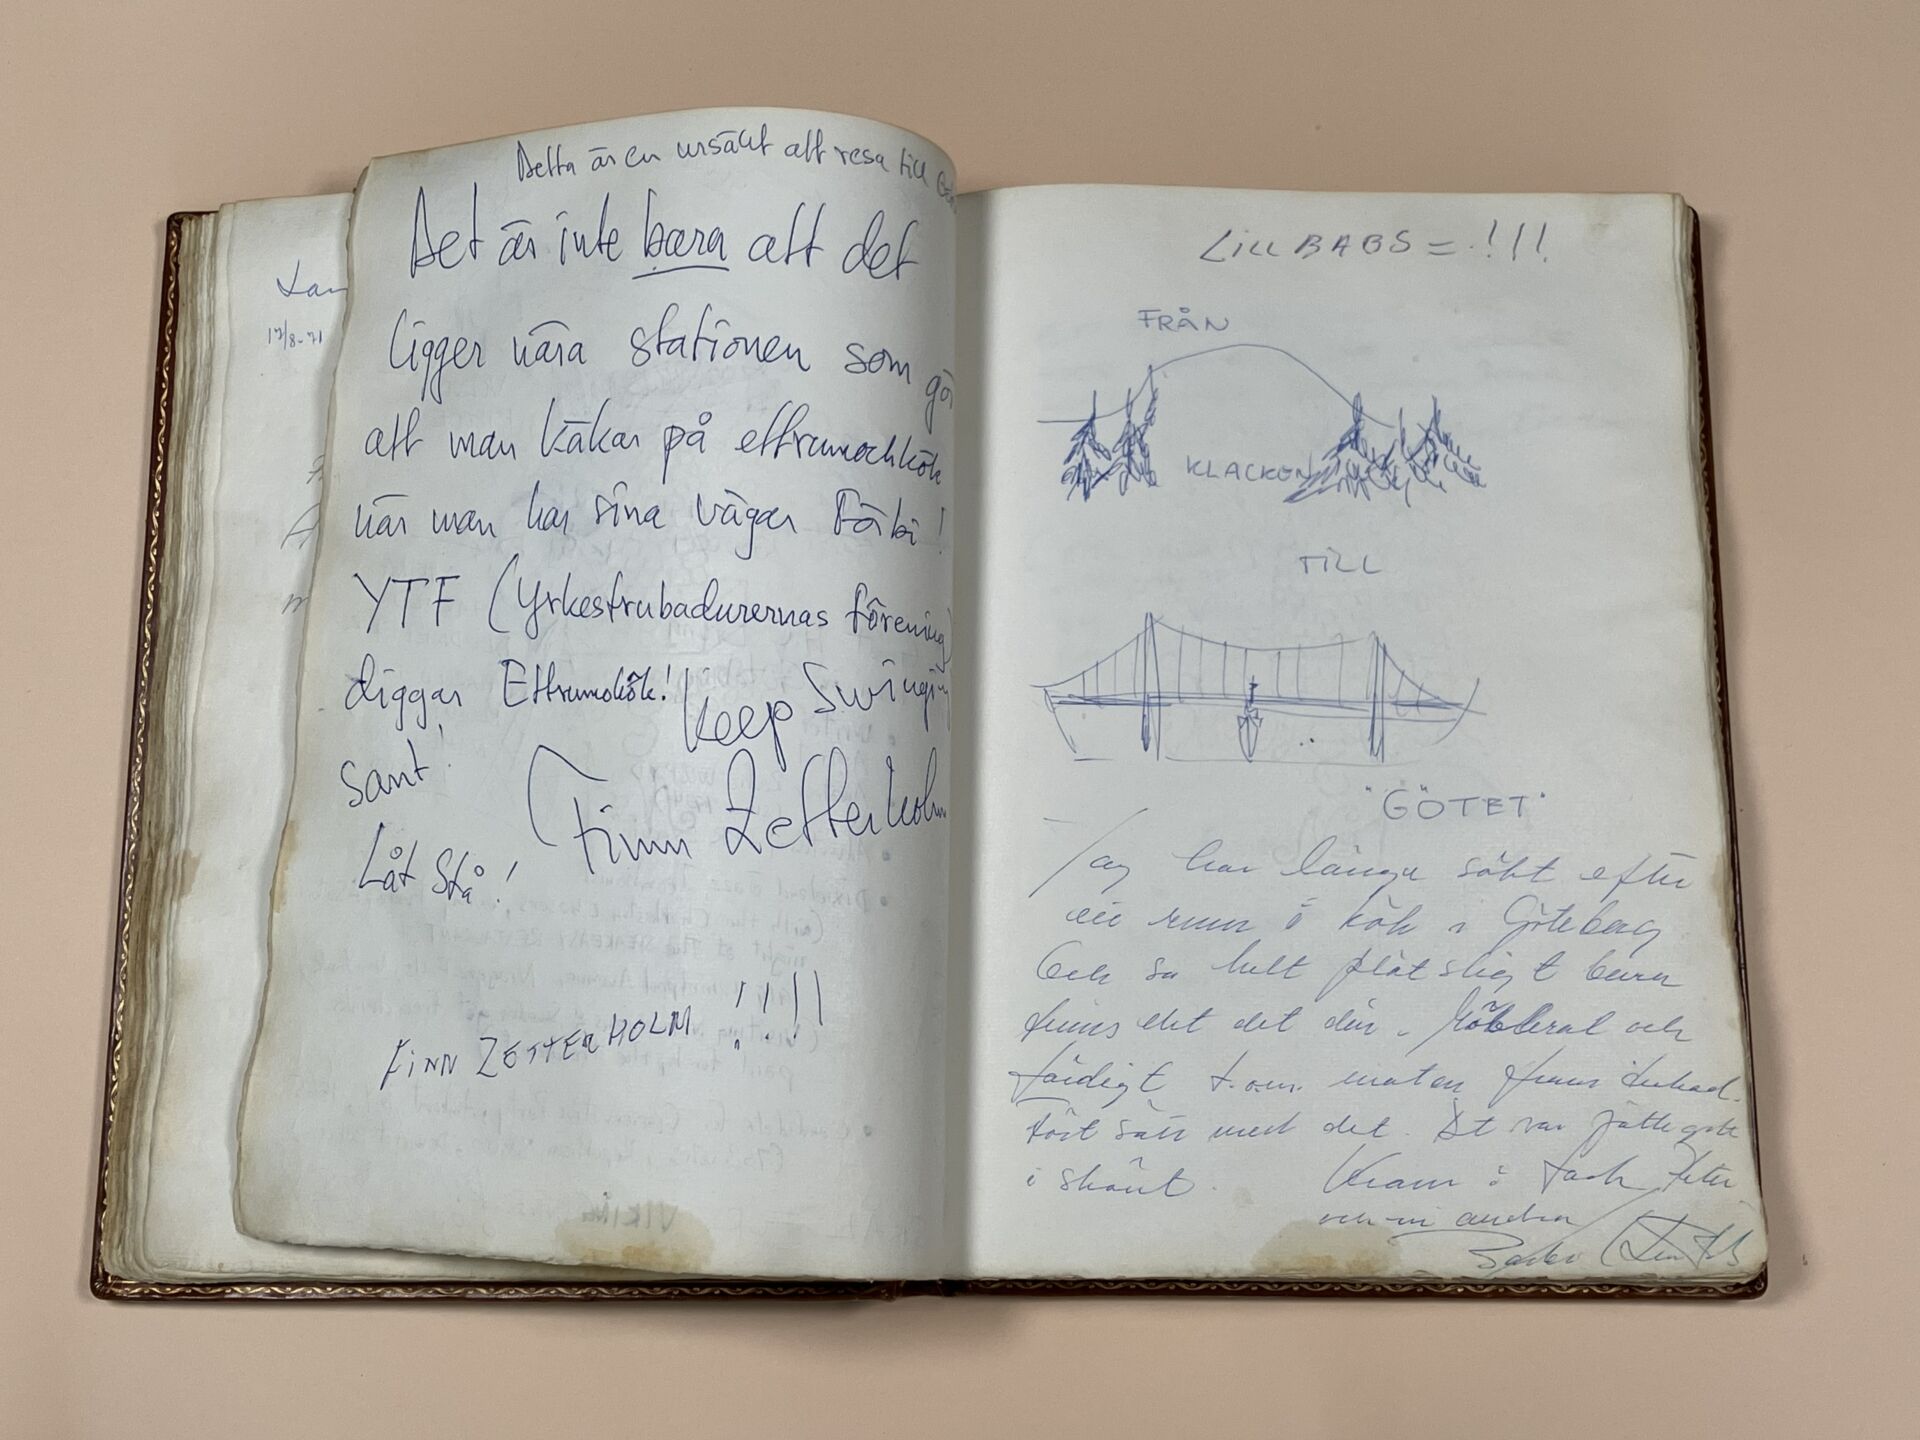 Detta är en ursäkt att resa till
Det är inte bara att det
ligger nära stationen som gör
att man käkar på ettrumochkök
när man har sina vägar förbi!
YTF (Yrkestrubadurernas förening)
diggar Ettrumokök! Keep Swingin
sant!
Finn Zetterholm
Låt Stå!
FINN ZETTERHOLM !!!!
Lan
17/8-71
LILL BABS = !!!
FRÅN
KLACKEN
TILL
"GÖTET"
Jag har länge sökt efter
ett rum i kök i Göteborg
Och så helt plötsligt bara
finns det det där. Möblerat och
färdigt t.o.m. maten finns
det. Det var jättegott
i skönt. Kram i Tack Peter
och ni andra